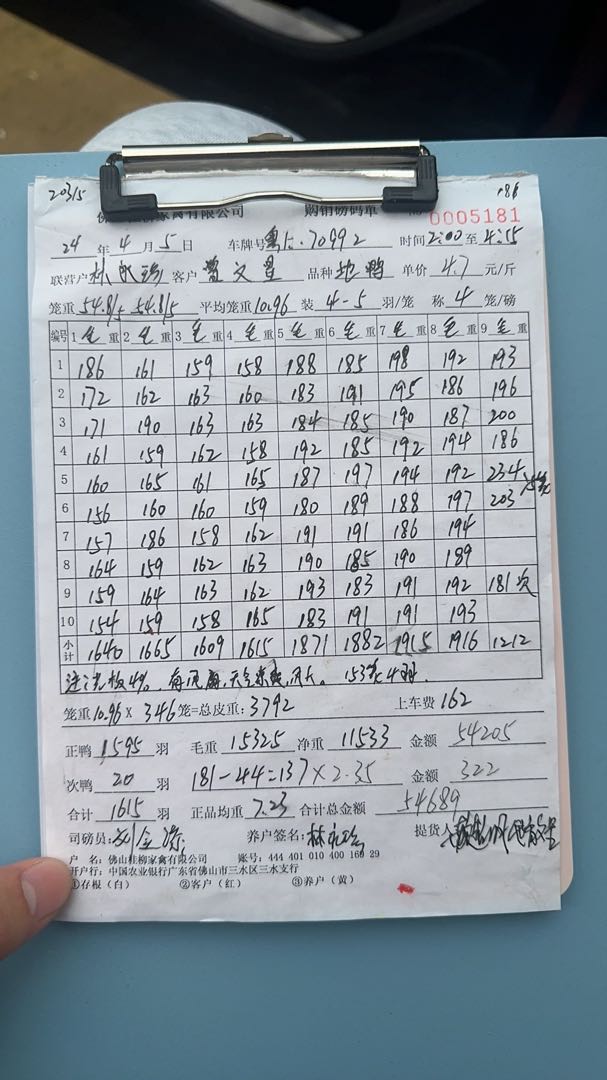 20315 186
家禽有限公司 购销磅码单 0005181
24 年 4 月 5 日 车牌号 70992 时间 2:00 至 4:15
联营户 林 珍 客户 曹文星 品种 地鸭 单价 4.7 元/斤
笼重 54.8/5 54.8/5 平均笼重 10.96 装 4-5 羽/笼 称 4 笼/磅
编号 1 毛 重 2 毛 重 3 毛 重 4 毛 重 5 毛 重 6 毛 重 7 毛 重 8 毛 重 9 毛 重
1 186 161 159 158 188 185 198 192 193
2 172 162 163 160 183 191 195 186 196
3 171 190 163 163 184 185 190 187 200
4 161 159 162 158 192 185 192 194 186
5 160 165 161 165 187 197 194 192 234
6 156 160 160 159 180 189 188 197 203
7 157 186 158 162 191 191 186 194
8 164 159 162 163 190 185 190 189
9 159 164 163 162 193 183 191 192 181次
10 154 159 158 165 183 191 191 193
小计 1640 1665 1609 1615 1871 1882 1915 1916 1212
4%, 153笼4羽.
笼重 10.96 × 346 笼=总皮重: 3792 上车费 162
正鸭 1595 羽 毛重 15325 净重 11533 金额 54205
次鸭 20 羽 181-44=137×2.35 金额 322
合计 1615 羽 正品均重 7.23 合计总金额 54689
司磅员: 养户签名: 林 珍 提货人
户 名: 佛山桂柳家禽有限公司 账号: 444 401 010 400 169 29
开户行: 中国农业银行广东省佛山市三水区三水支行
①存根（白） ②客户（红） ③养户（黄）